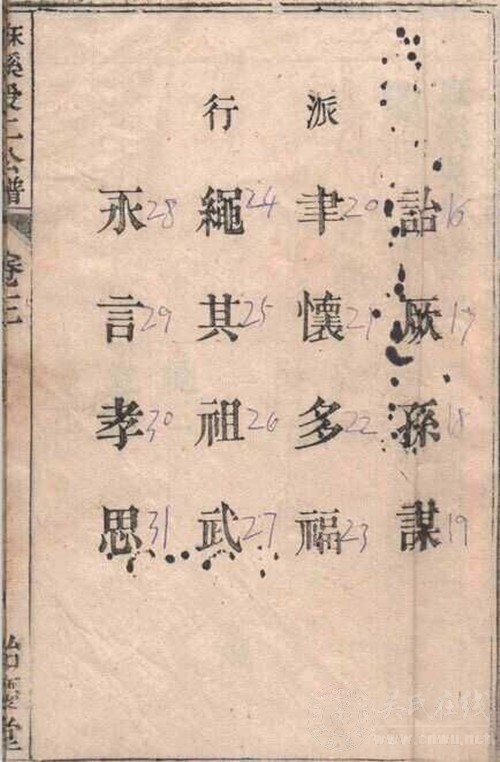 派行
詒16 厥17 孫18 謀19
聿20 懷21 多22 福23
繩24 其25 祖26 武27
永28 言29 孝30 思31
公譜 卷三
吴氏在线
www.cnwu.net